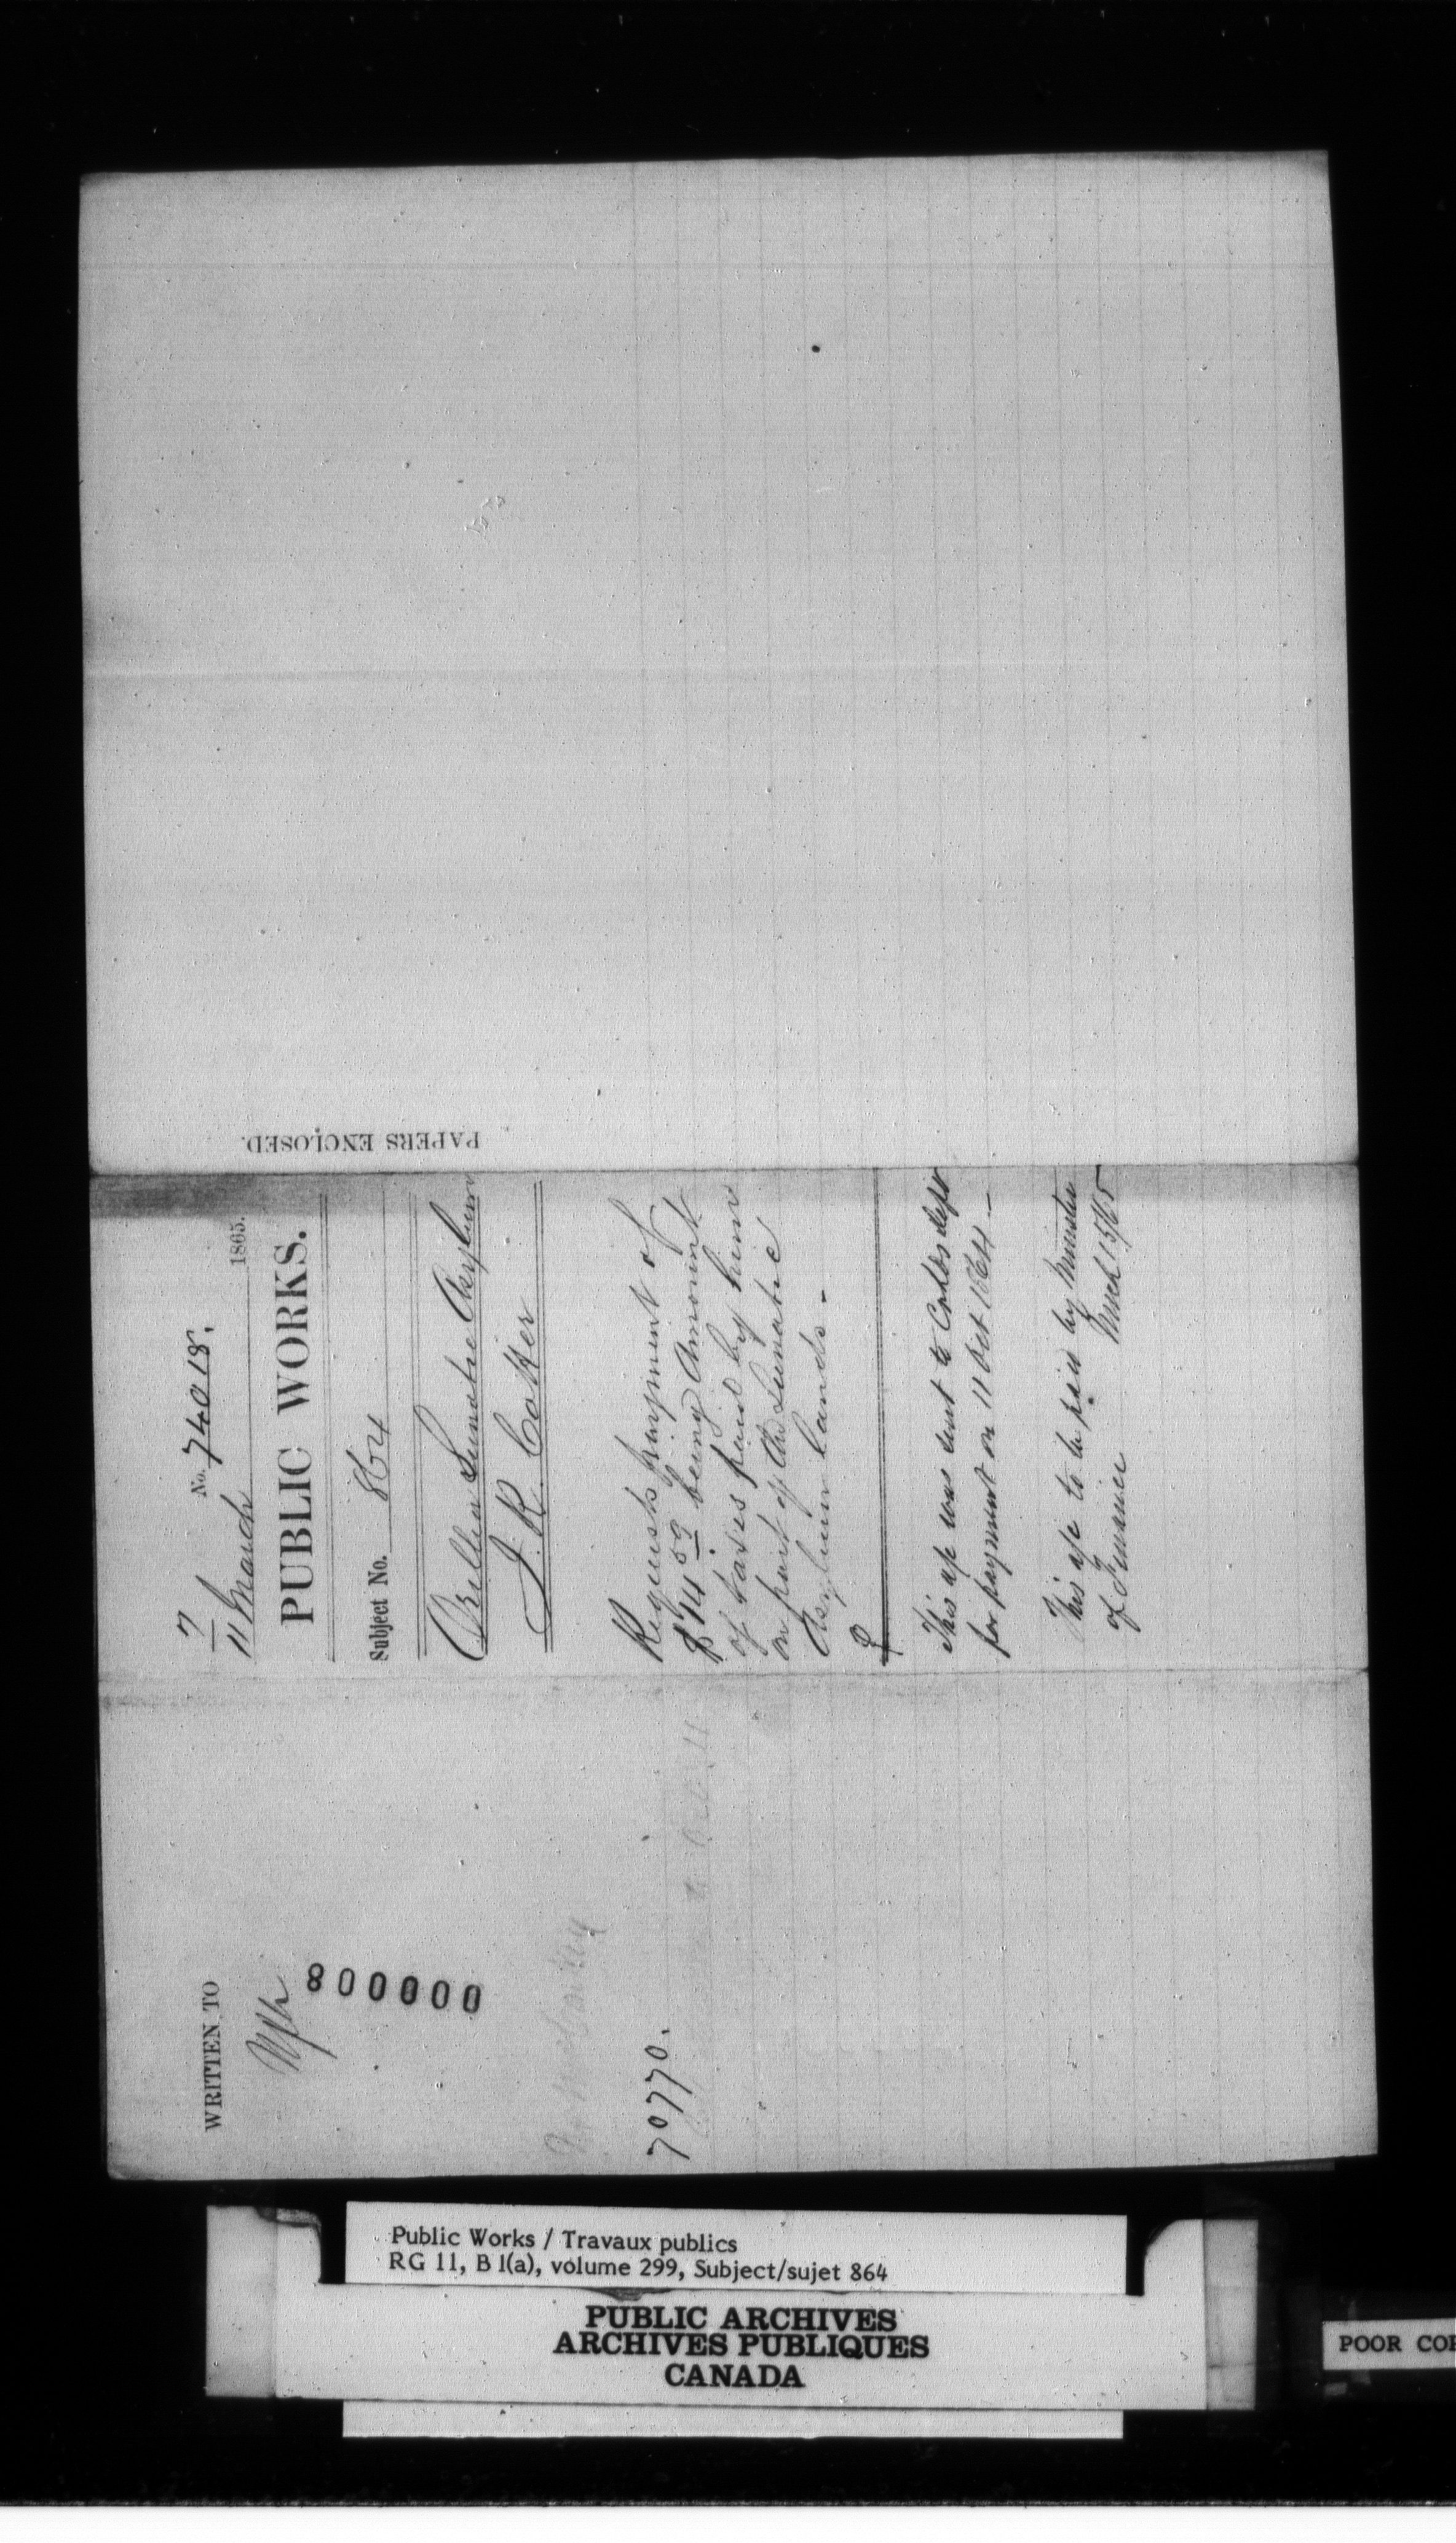 PAPERS ENCLOSED.
7
11 March 1865.
No. 74018.
PUBLIC WORKS.
Subject No. 864
Orillia Lunatic Asylum
J. R. Cotter
Requests payment of
$14 59 being Amount
of taxes paid by him
on part of the Lunatic
Asylum lands.
This a/c was sent to dept
for payment on 11 Oct 1864 —
This a/c to be paid by Minister
of Finance March 15/65
WRITTEN TO
800000
70770.
Public Works / Travaux publics
RG 11, B 1(a), volume 299, Subject/sujet 864
PUBLIC ARCHIVES
ARCHIVES PUBLIQUES
CANADA
POOR COP